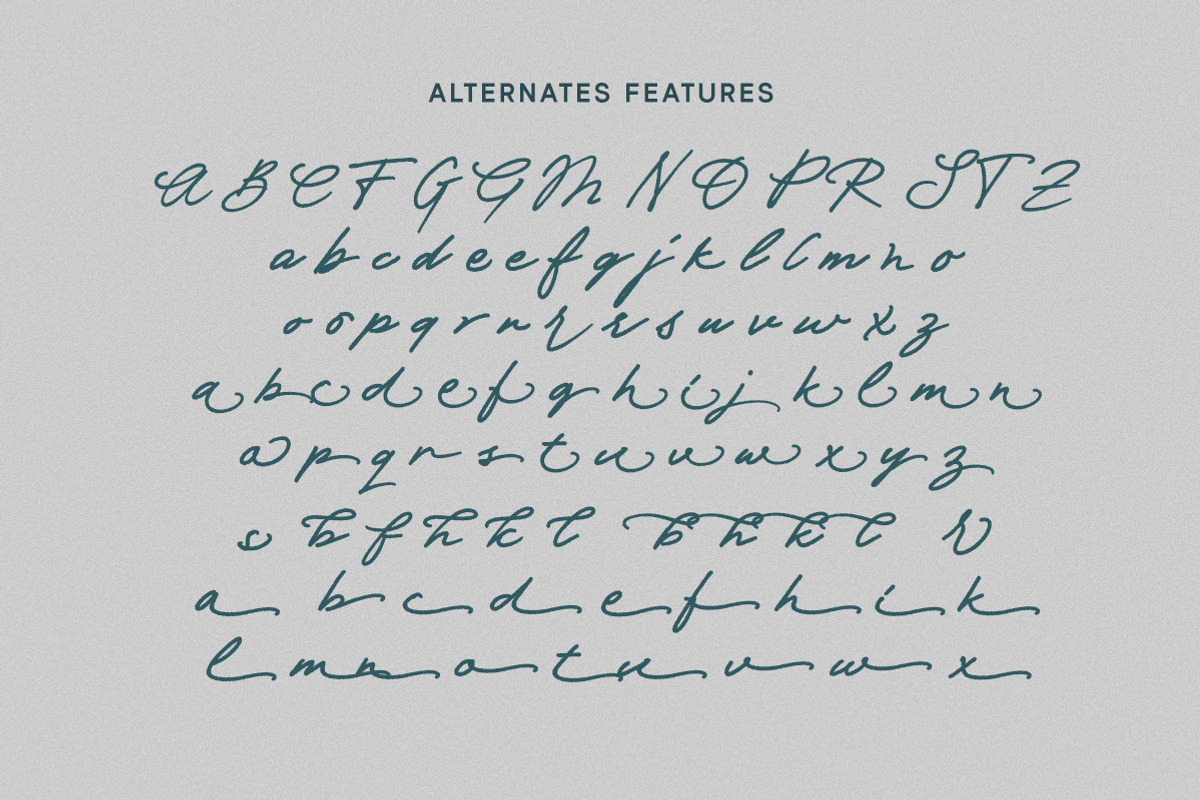 ALTERNATES FEATURES
A B C F G G M N O P R S T Z
a b c d e e f g j k l l m n o
o o p q r n r r s u v w x z
a b c d e f g h i j k l m n
o p q r s t u v w x y z
s b f h k l b h k l r
a b c d e f h i k
l m n o t u v w x